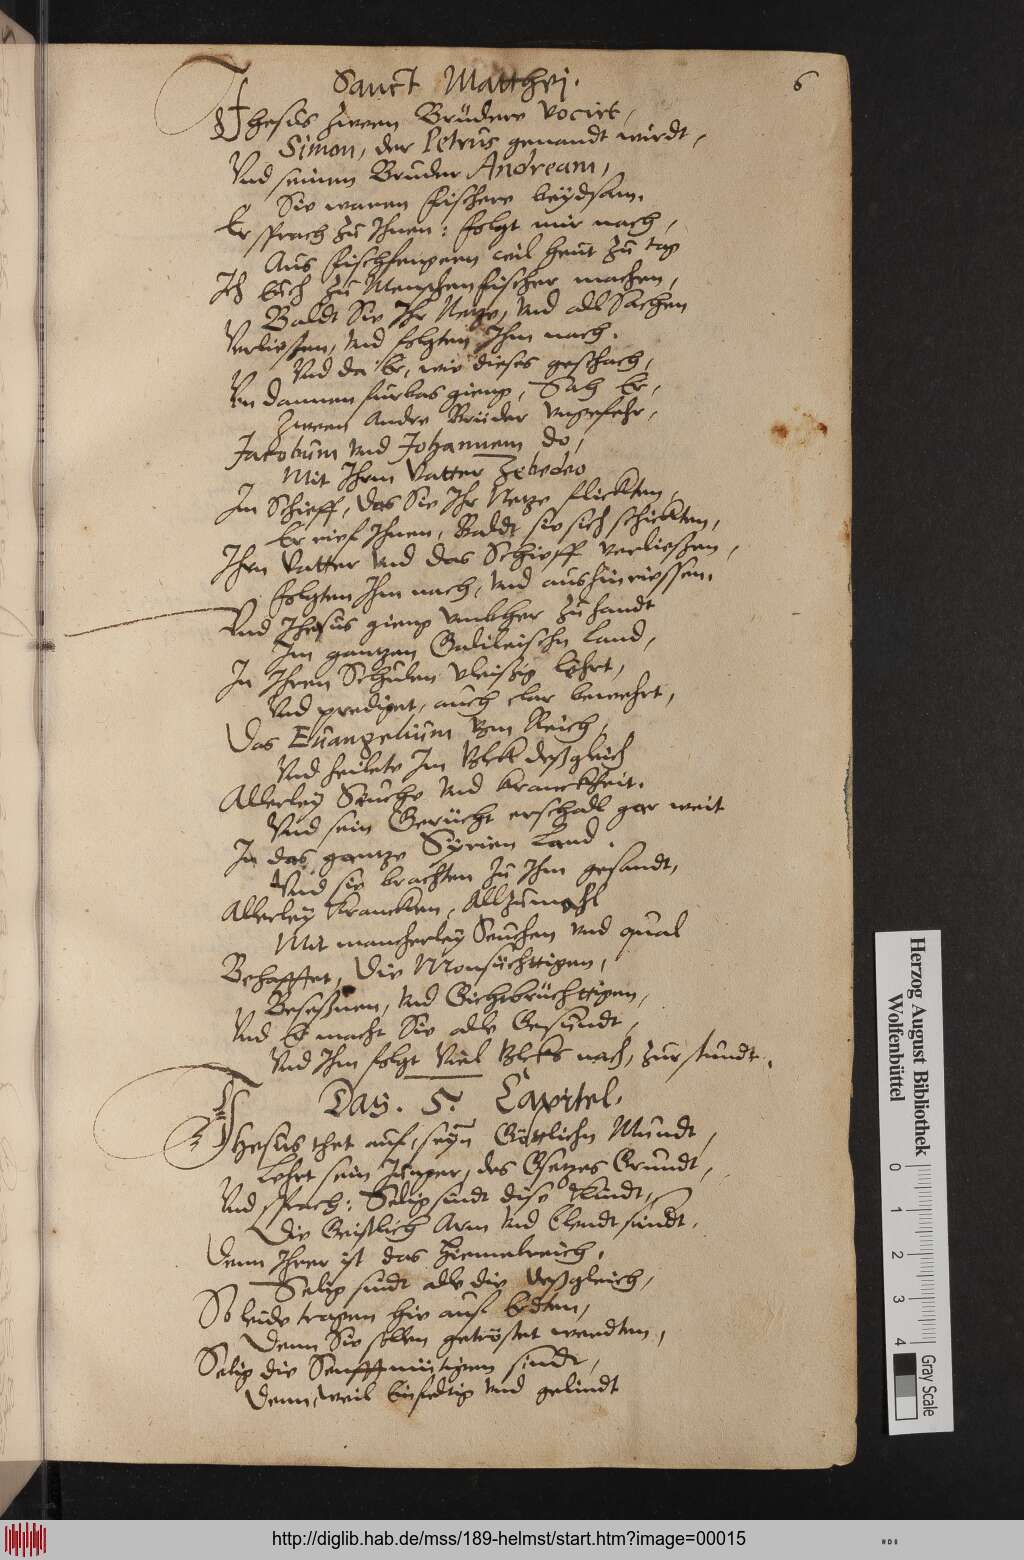 Sanct Matthej.
6
Jhesus zween Brüdere vocirt,
Simon, der Petrus genandt wirdt,
Vnd seinen Bruder Andream,
Sie waren fischere beÿdsam.
Er sprach zu Ihnen: folgt mir nach,
Aus fischfengern will heut zu tag
Ich Euch zu Menschenfischer machen,
Baldt Sie Ihr Netze, vnd all Sachen
Verliessen, vnd folgten Ihm nach.
Vnd da Er, wie dieses geschach,
Von dannen furbas gieng, Sah Er,
Zween Andre Brüder vngefehr,
Jacobum vnd Johannem do,
Mit Ihrm Vatter Zebedeo
Im Schieff, das Sie Ihr Netze flickten,
Er rief Ihnen, Baldt sie sich schickten,
Ihrn Vatter vnd das Schieff verliessen,
folgten Ihm nach, vnd aushinriessen.
Vnd Jhesus gieng vmbher zu handt
Im gantzen Galileischn Land,
In Ihren Schulen vleissig lehrt,
Vnd prediget, auch clar bewehrt,
Das Euangelium vom Reich,
Vnd heilete Im Volck dessgleich
Allerleÿ Seuche vnd kranckheit.
Vnd sein Gerücht erschall gar weit
In das gantze Syrien Land.
Vnd sie brachten zu Ihm gesandt,
Allerleÿ krancken, Allzumahl
Mit mancherleÿ Seuchen vnd qual
Behafftet, die Monsüchttigen,
Besessnen, vnd Gichtbrüchttigen,
Vnd Er macht Sie alle Gesundt,
Vnd Ihm folgt Viel Volcks nach, zur stundt.
Das. 5. Capitel.
Jhesus thet auf, seÿn Göttlichn Mundt,
Lehrt sein Jünger, des Gsetzes Grundt,
Vnd sprach: Selig sindt dise kindt,
Die Geistlich Arm vnd Elendt sindt.
Denn Ihrer ist das Himmelreich,
Selig sindt alle die dessgleich,
So leide tragen hie auf Erdten,
Denn Sie sollen getröstet werdten,
Selig die Senfftmütigen sindt,
Denn, weil Einfeltig vnd gelindt
Herzog August Bibliothek
Wolfenbüttel
0 1 2 3 4
Gray Scale
http://diglib.hab.de/mss/189-helmst/start.htm?image=00015